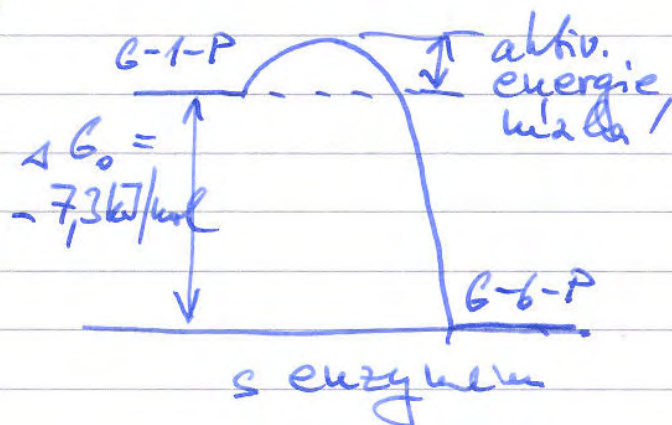 G-1-P
aktiv.
energie
nízká!
Δ G₀ =
- 7,3 kJ/mol
G-6-P
s enzymem